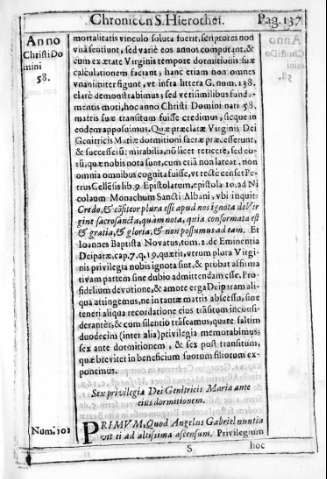 Chronicon S. Hierothei. Pag. 137
Anno
Christi Do
mini
58.
mortalitatis vinculo soluta fuerit, scriptores non
vnà sentiunt, sed varie eos annos computant, &
cum ex ætate Virginis tempore dormitionis suæ
calculationem faciant, hanc etiam non omnes
vnanimiter figunt, vt infra litera G, num. 138.
clare demonstrabimus, sed verisimilibus funda-
mentis moti, hoc anno Christi Domini nati 58.
matris suæ transitum fuisse credimus, sicque in
eodem apposuimus. Quæ præclatæ Virginis Dei
Genitricis Mariæ dormitioni sacra præcesserunt,
& successere mirabilia, nõ licet reticere, sed cer-
quæ nobis nota sunt, cum etiã non lateat, non
omnia omnibus cognita fuisse, vt recte censet Pe-
trus Cellẽsis lib. 9. Epistolarum, epistola 10. ad Ni
colaum Monachum Sancti Albani, vbi inquit:
Credo, & cõfiteor plura esse apud nos ignota de Vir-
gine sacrosancta, quàm nota, quia confortata est
& gratia, & gloria, & non possumus ad eam. Et
Ioannes Baptista Nouatus, tom. 2. de Eminentia
Deiparæ, cap. 7. q. 19. quærit, vtrum plura Virgi-
nis privilegia nobis ignota sint, & probat affirma
tivam partem sine dubio admittendam esse. Pro
fidelium devotione, & amore erga Deiparam ali
qua attingemus, ne in tantæ matris abscessu, sine
teneri aliqua recordatione eius trãsitum incõsi-
derantẽr, & cum silentio trãseamus, quare saltim
duodecim (inter alia) privilegia memorabimus;
sex ante dormitionem, & sex post transitum,
quæ breviter in beneficium suorum filiorum ex-
ponemus.
Sex privilegia Dei Genitricis Maria ante
eius dormitionem.
Num. 101
PRIMVM, Quod Angelus Gabriel nuntia
vit ei ad altissima ascensum. Privilegium
S
hoc